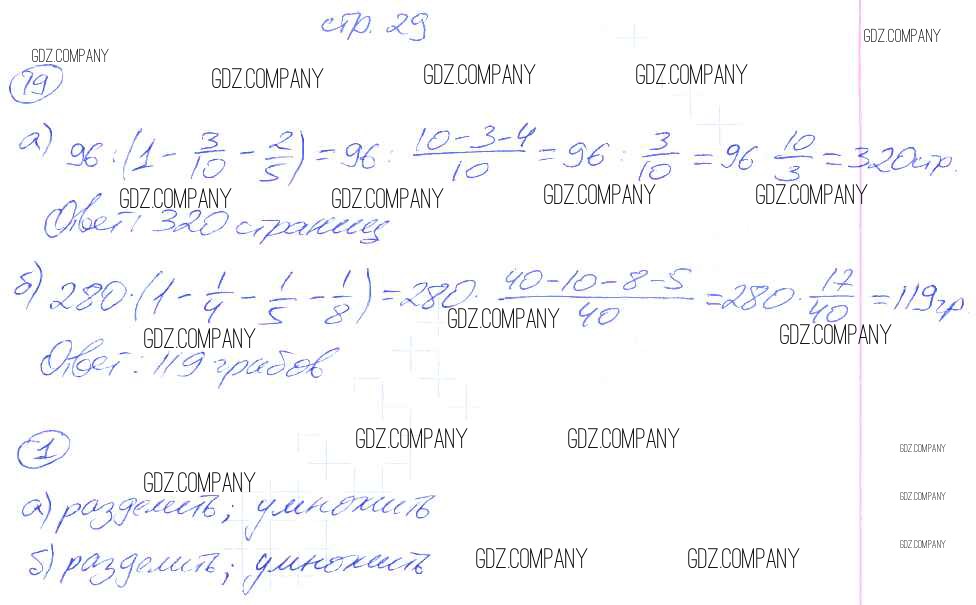 стр. 29
GDZ.COMPANY GDZ.COMPANY
GDZ.COMPANY GDZ.COMPANY GDZ.COMPANY
19
а) 96 : (1 - 3/10 - 2/5) = 96 : (10-3-4)/10 = 96 : 3/10 = 96 10/3 = 320стр.
GDZ.COMPANY GDZ.COMPANY GDZ.COMPANY GDZ.COMPANY
Ответ: 320 страниц
б) 280·(1 - 1/4 - 1/5 - 1/8) = 280· (40-10-8-5)/40 = 280 · 17/40 = 119гр.
GDZ.COMPANY GDZ.COMPANY GDZ.COMPANY
Ответ: 119 грибов
1
GDZ.COMPANY GDZ.COMPANY GDZ.COMPANY
GDZ.COMPANY GDZ.COMPANY
а) разделить; умножить
б) разделить; умножить
GDZ.COMPANY GDZ.COMPANY GDZ.COMPANY